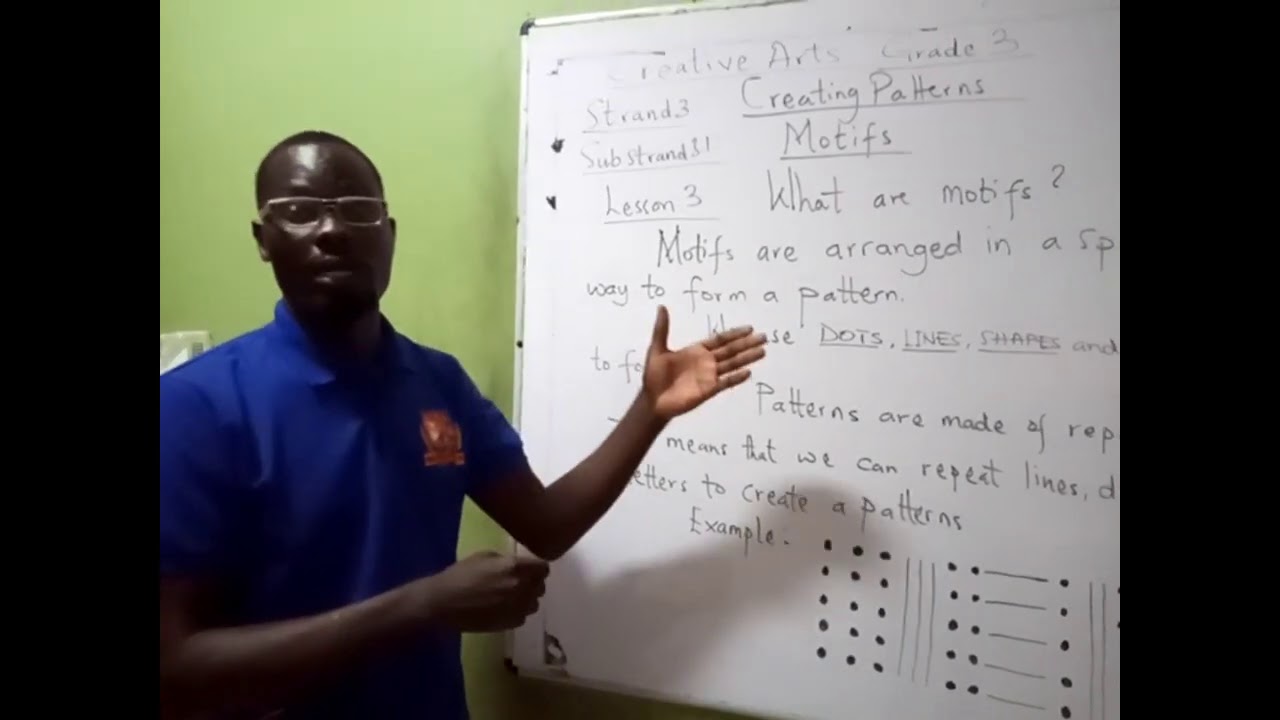 Creative Arts Grade 3
Strand3 Creating Patterns
Substrand31 Motifs
Lesson 3 What are motifs?
Motifs are arranged in a sp
way to form a pattern.
se DOTS, LINES, SHAPES and
to fo
Patterns are made of rep
means that we can repeat lines, d
etters to create a patterns
Example: